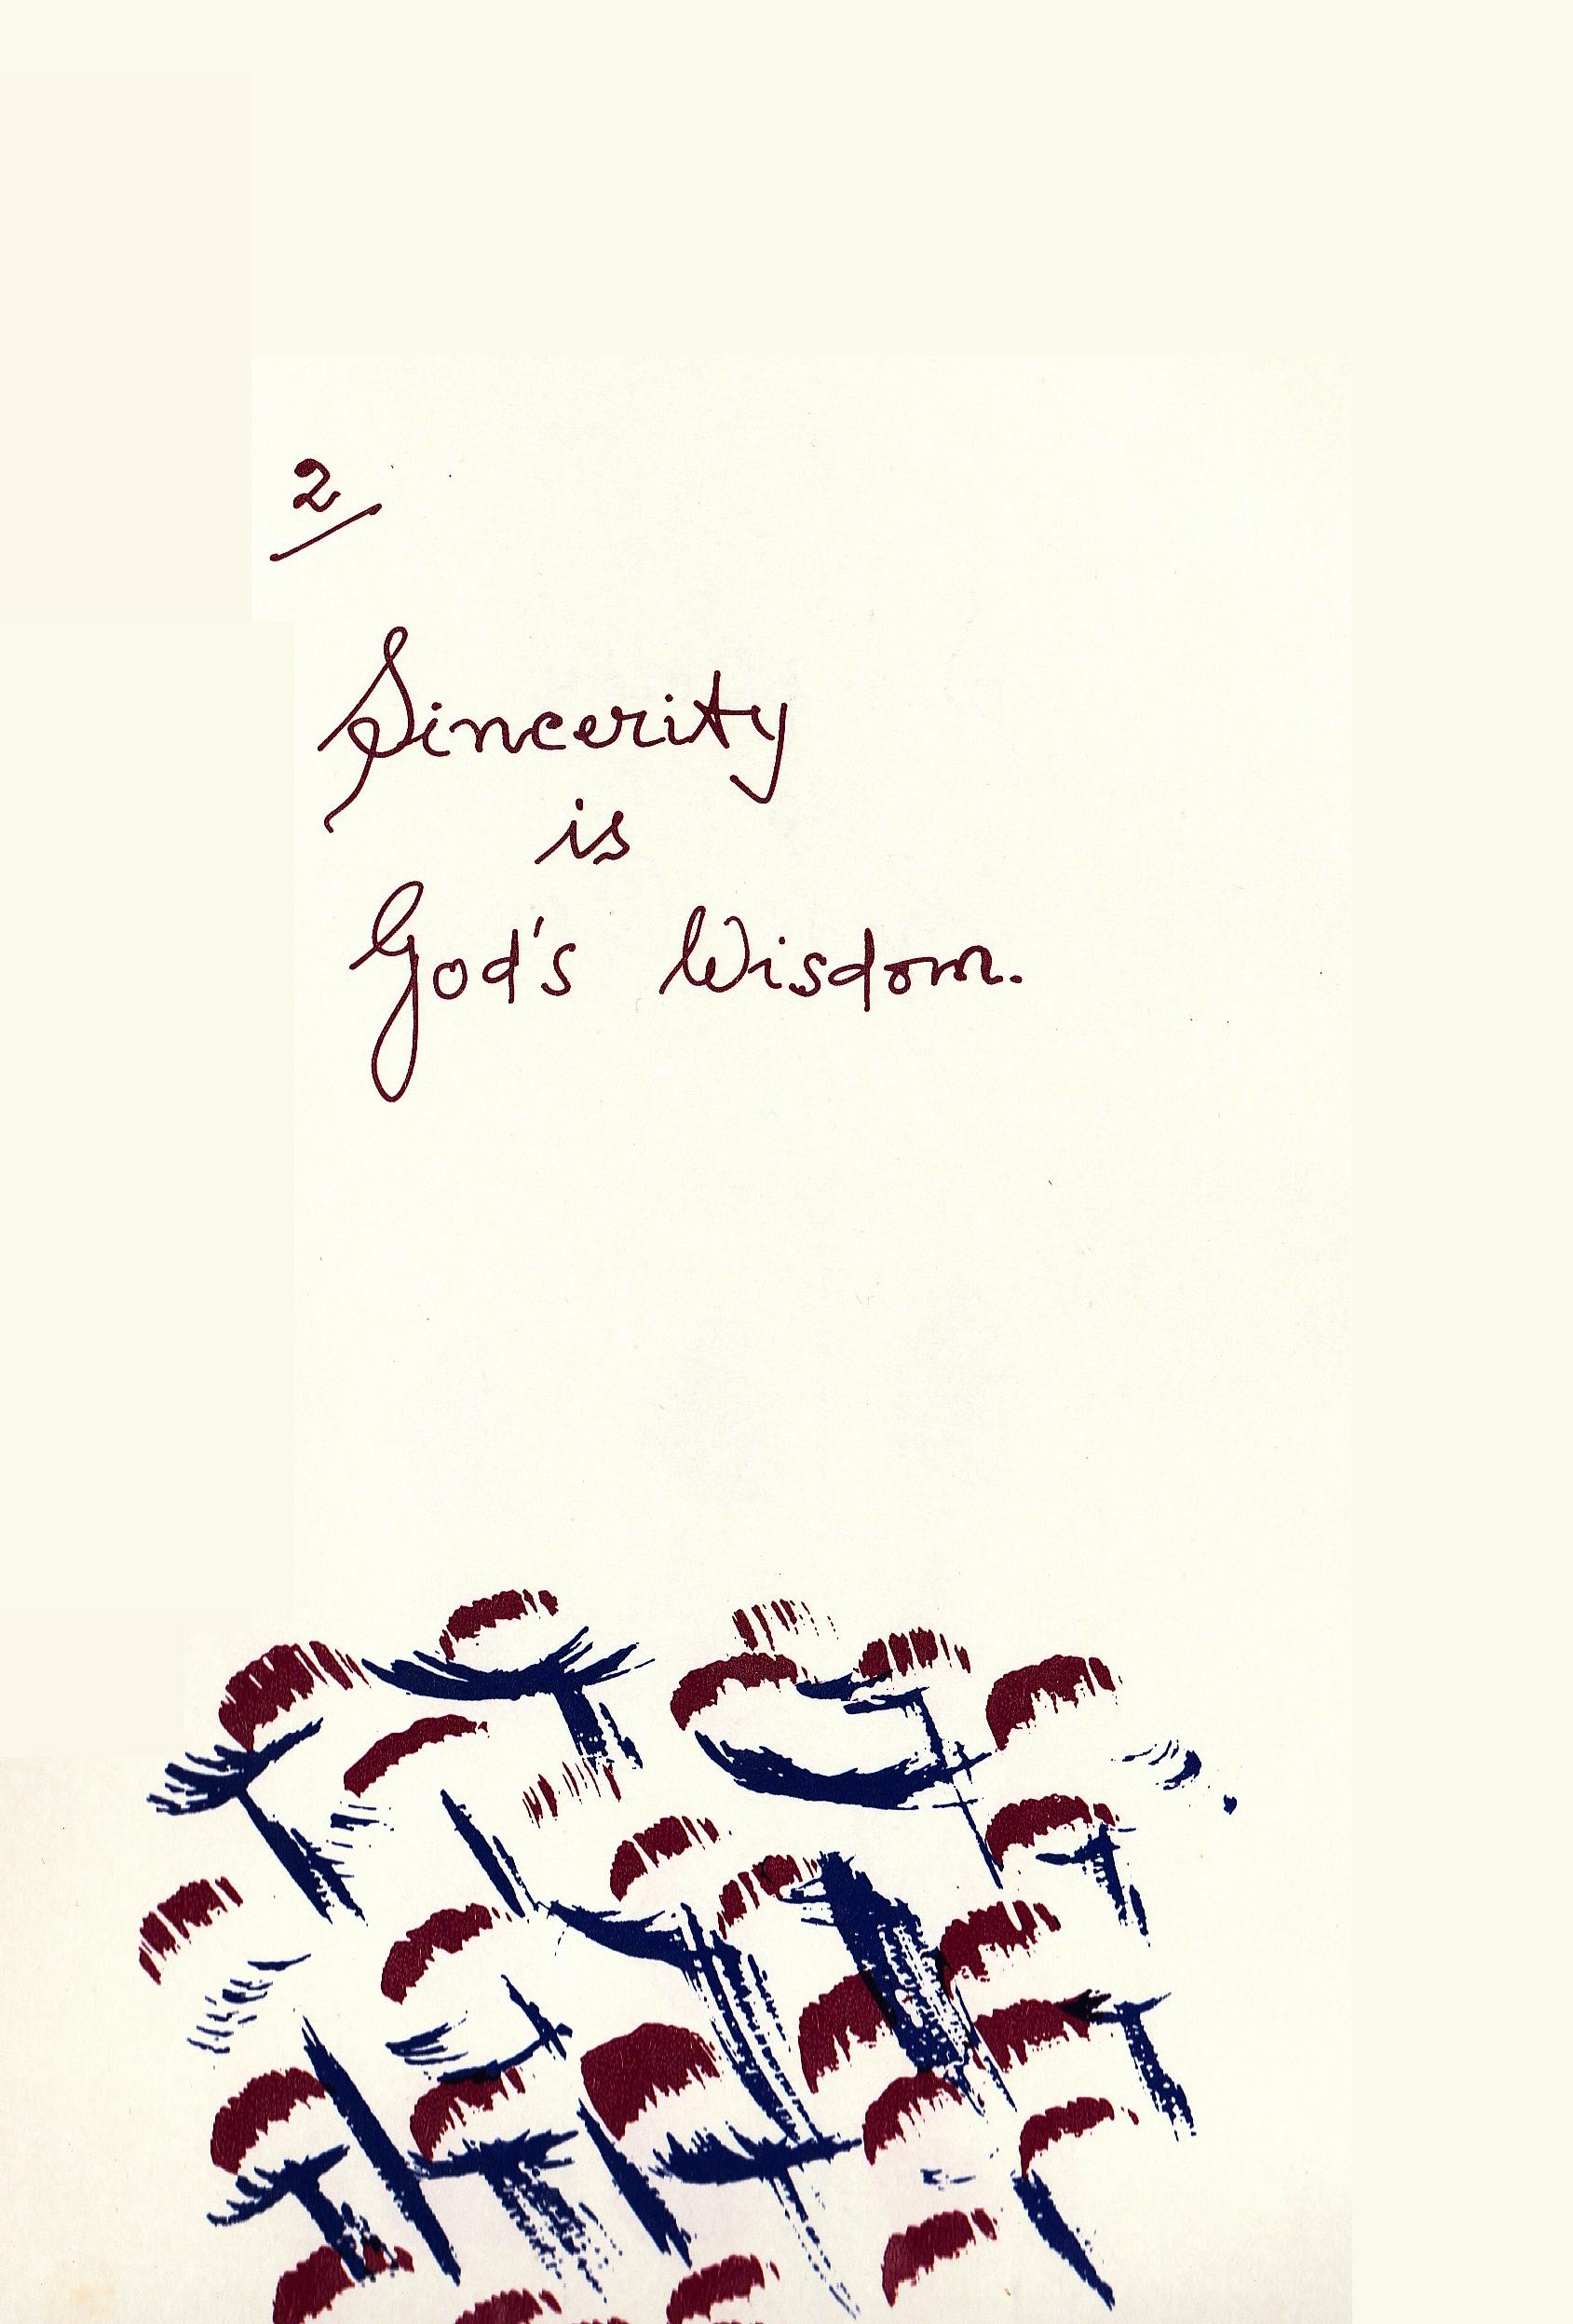 2
Sincerity
is
God's Wisdom.